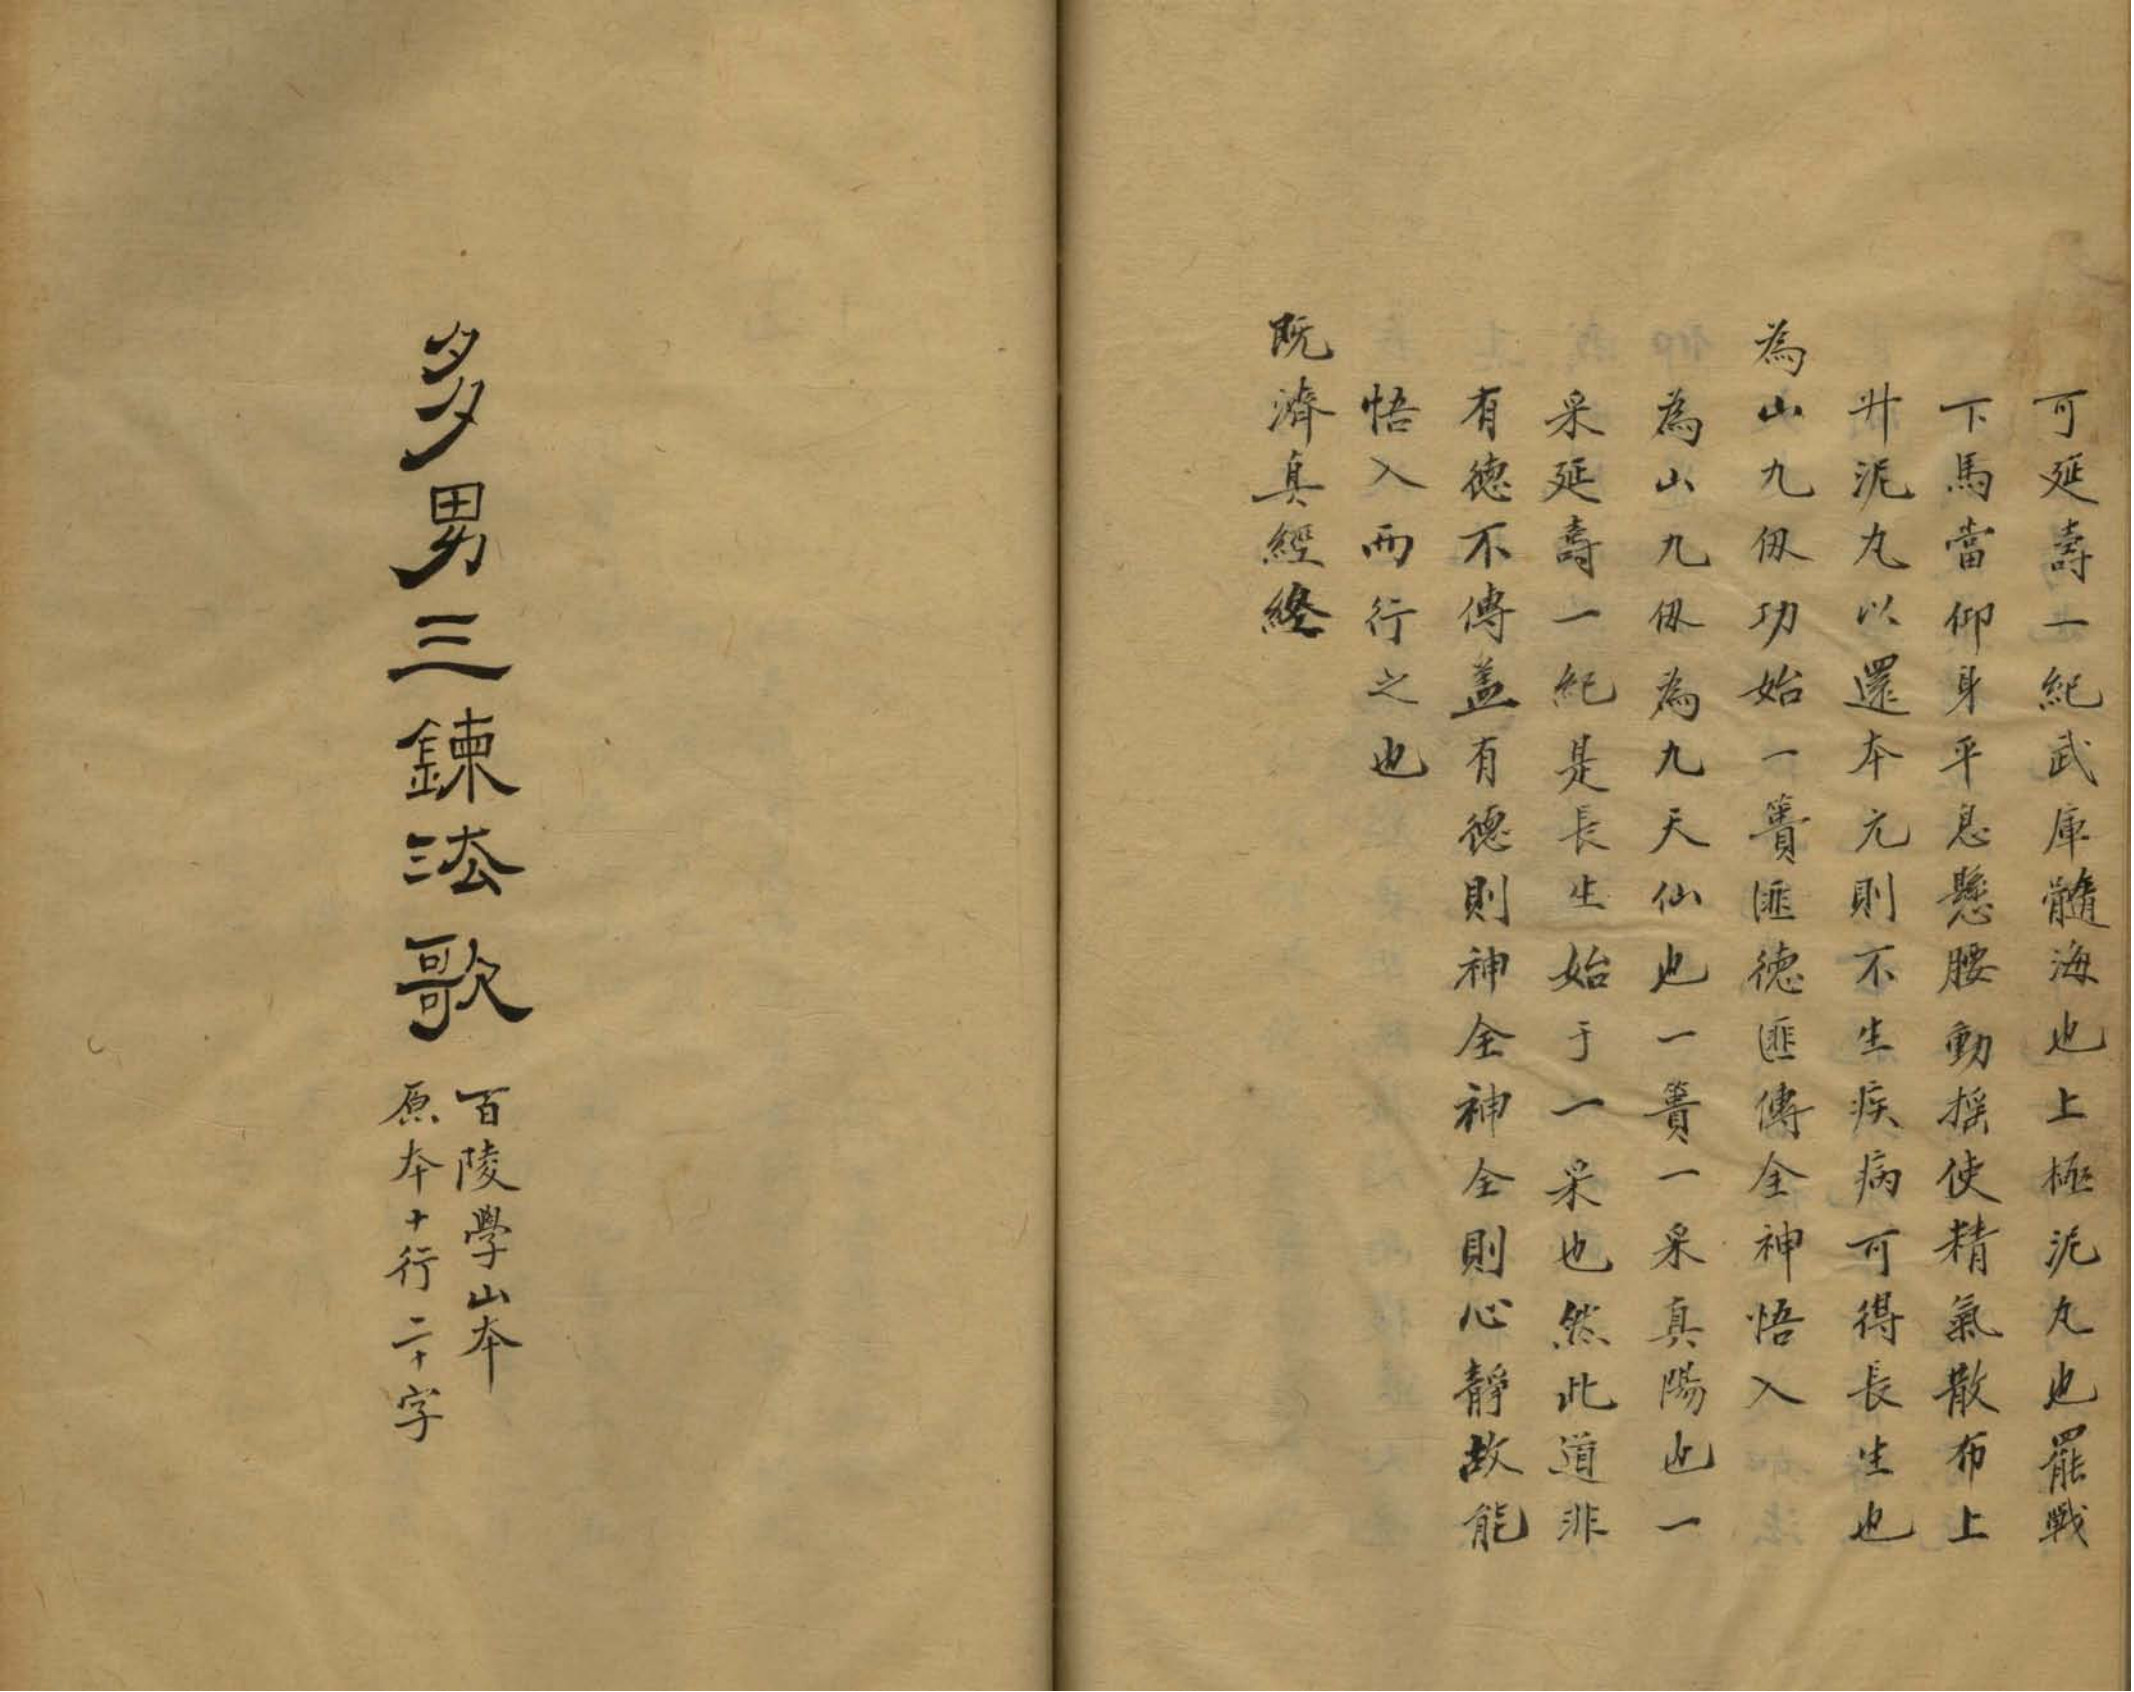 可延壽一紀武庫髓海也上極泥丸也罷戰
下馬當仰身平息懸腰動摇使精氣散布上
升泥丸以還本元則不生疾病可得長生也
為山九仭功始一簣匪德匪傳全神悟入
為山九仭為九天仙也一簣一采真陽也一
采延壽一紀是長生始于一采也然此道非
有德不傳盖有德則神全神全則心靜故能
悟入而行之也
既濟真經終
多男三鍊法歌
百陵學山本
原本十行二十字